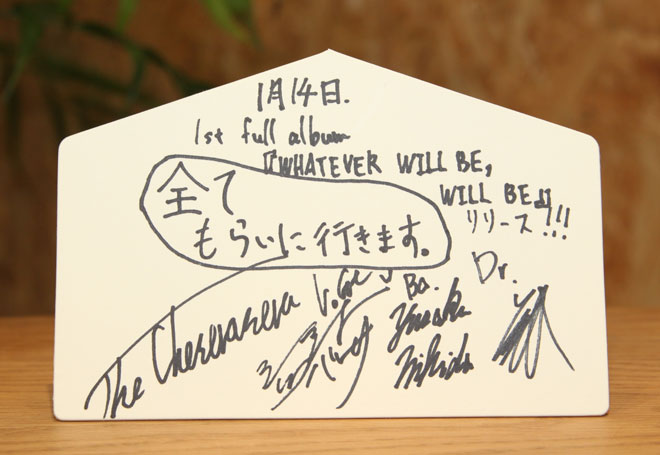 1月14日.
1st full album
『WHATEVER WILL BE,
WILL BE』
リリース!!!
全て
もらいに行きます。
The Cheserasera
Ba.
Dr.